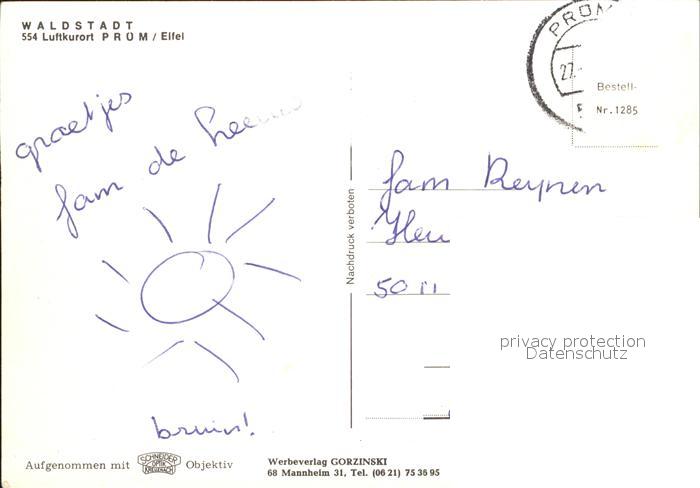 WALDSTADT
554 Luftkurort PRÜM / Eifel
PRÜM
27.
Bestell-
Nr. 1285
groetjes
fam de
bruin!
fam Reynen
50
Nachdruck verboten
privacy protection
Datenschutz
Aufgenommen mit SCHNEIDER OPTIK KREUZNACH Objektiv
Werbeverlag GORZINSKI
68 Mannheim 31, Tel. (06 21) 75 36 95